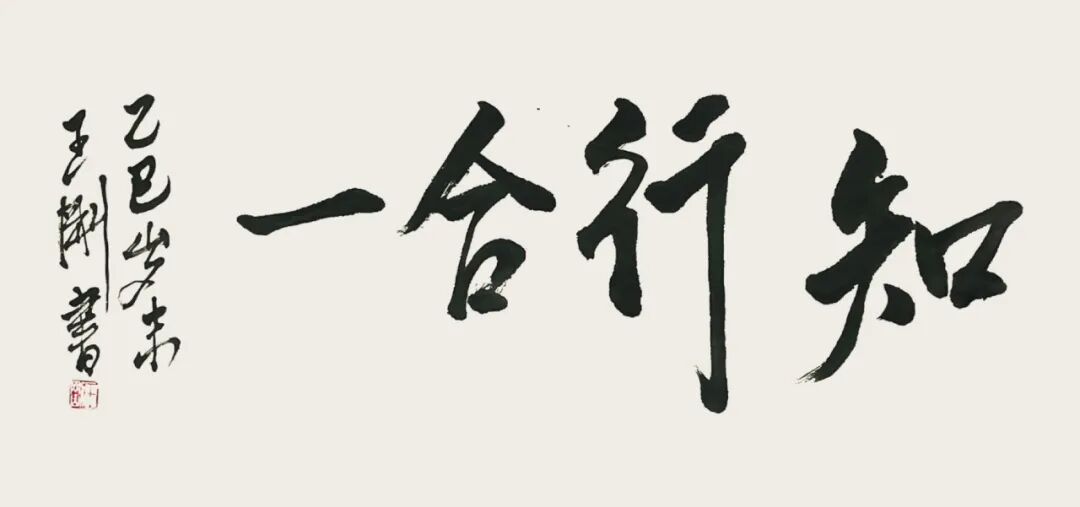 知行合一
乙巳岁末
王刚书